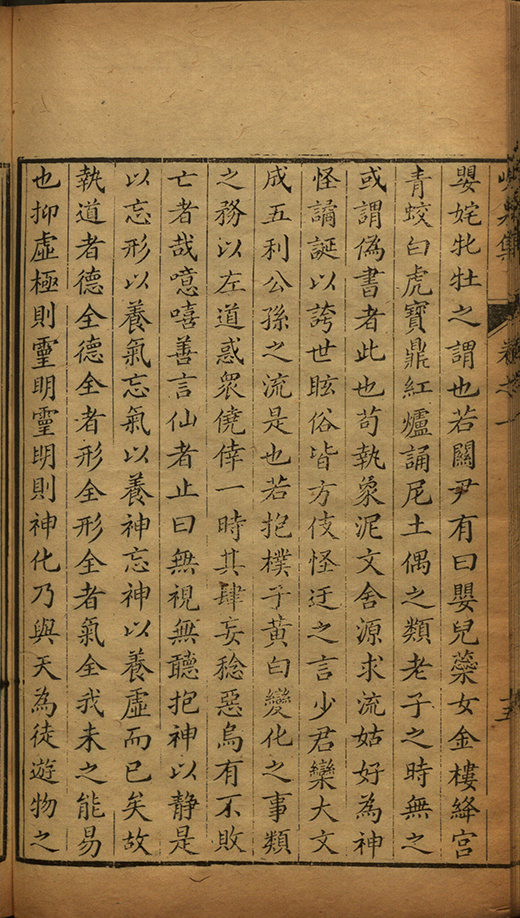 嬰姹牝牡之謂也若關尹有曰嬰兒蘂女金樓絳宮
青蛟白虎寶鼎紅爐誦呪土偶之類老子之時無之
或謂偽書者此也苟執象泥文舍源求流姑好為神
怪譎誕以誇世眩俗皆方伎怪迂之言少君欒大文
成五利公孫之流是也若抱樸子黃白變化之事類
之務以左道惑衆僥倖一時其肆妄稔惡烏有不敗
亡者哉噫嘻善言仙者止曰無視無聽抱神以静是
以忘形以養氣忘氣以養神忘神以養虛而已矣故
執道者德全德全者形全形全者氣全我未之能易
也抑虛極則靈明靈明則神化乃與天為徒遊物之